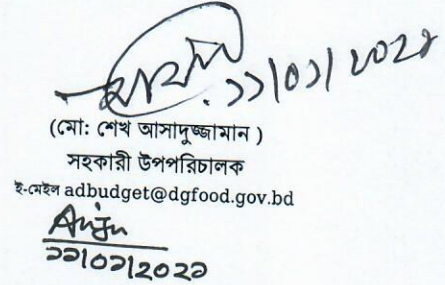 ১১/০১/২০২১
(মো: শেখ আসাদুজ্জামান )
সহকারী উপপরিচালক
ই-মেইল adbudget@dgfood.gov.bd
Anju
১১/০১/২০২১